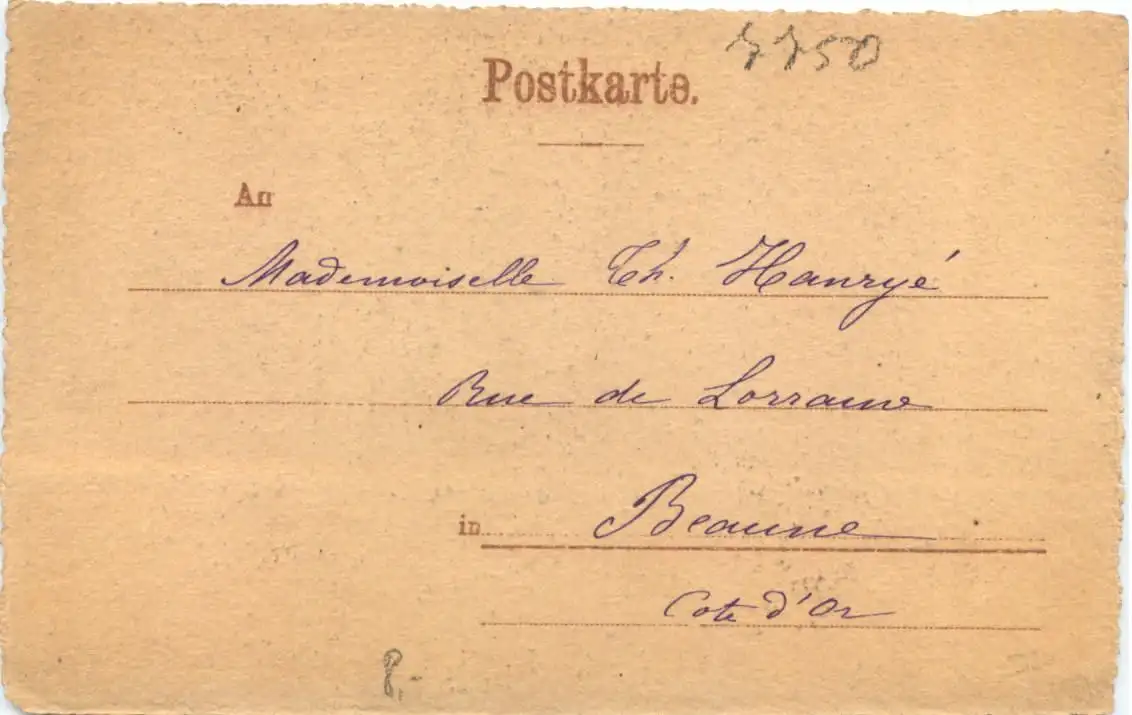 7750
Postkarte.
An
Mademoiselle Th. Hanryé
Rue de Lorraine
in Beaune
Cote d'Or
8.-